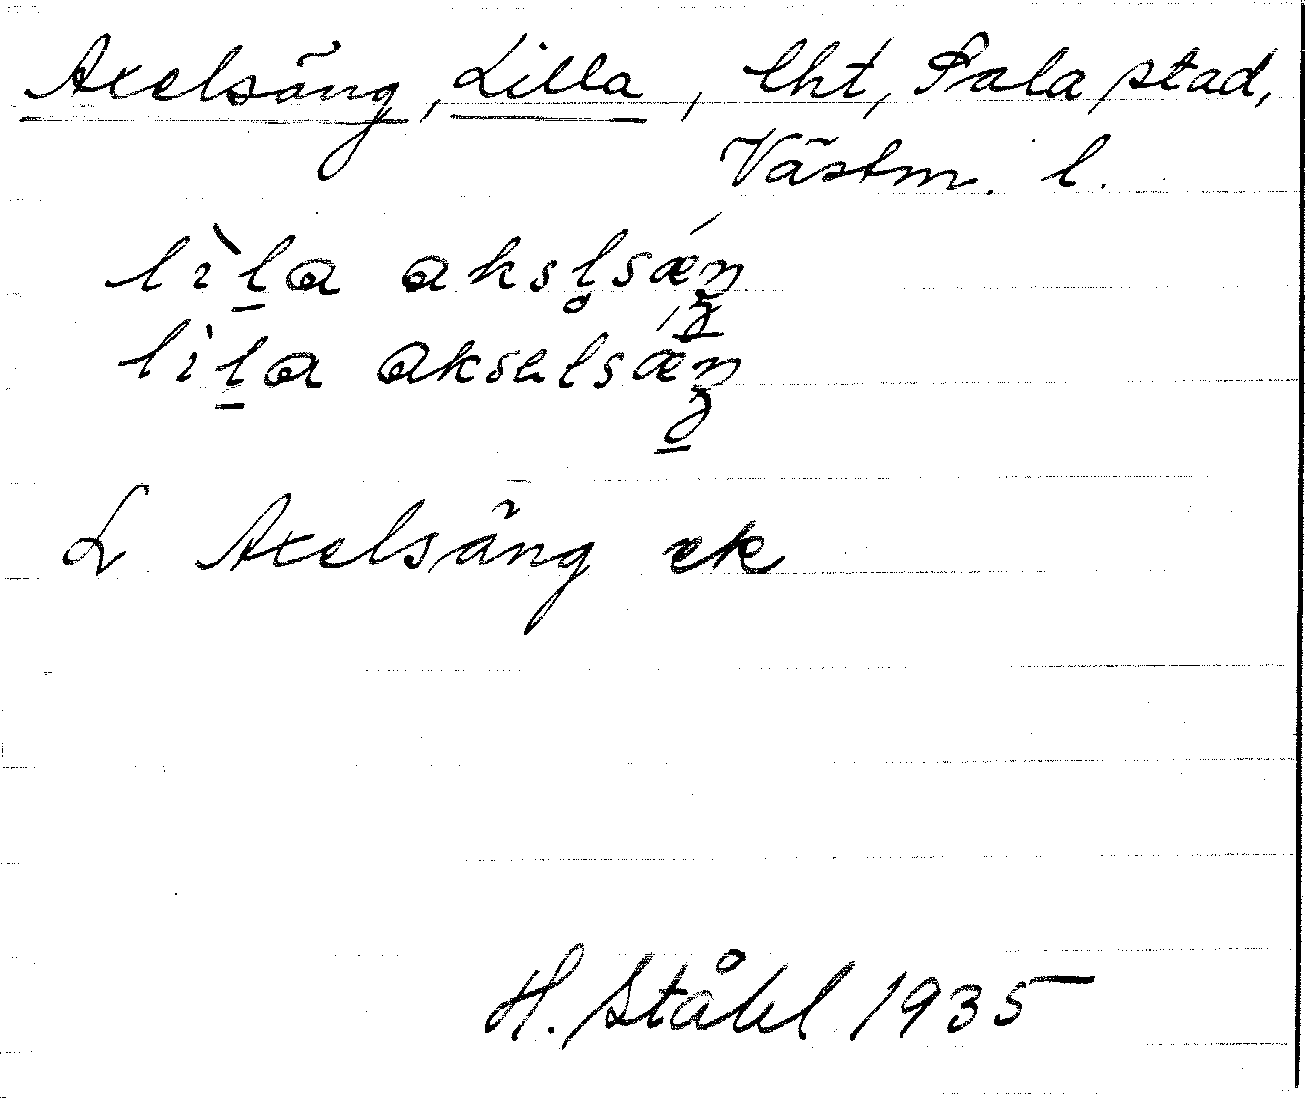 Axelsäng, Lilla, lht, Sala stad,
Västm. l.
lìḻa aksl̥sǽŋ
lìḻa akselsǽŋ
L Axelsäng ek
H. Ståhl 1935